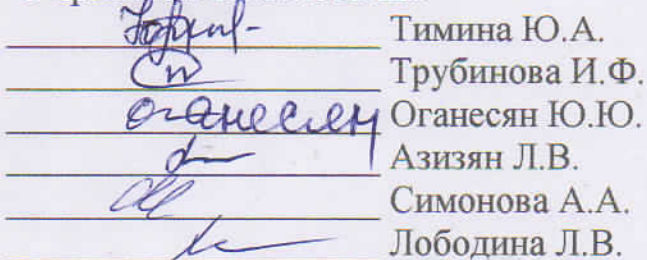 Тимина Ю.А.
Трубинова И.Ф.
Оганесян Оганесян Ю.Ю.
Азизян Л.В.
Симонова А.А.
Лободина Л.В.